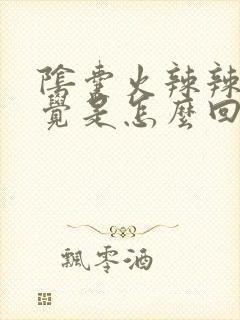 陰囊火辣辣
覺是怎麼回
飄零酒